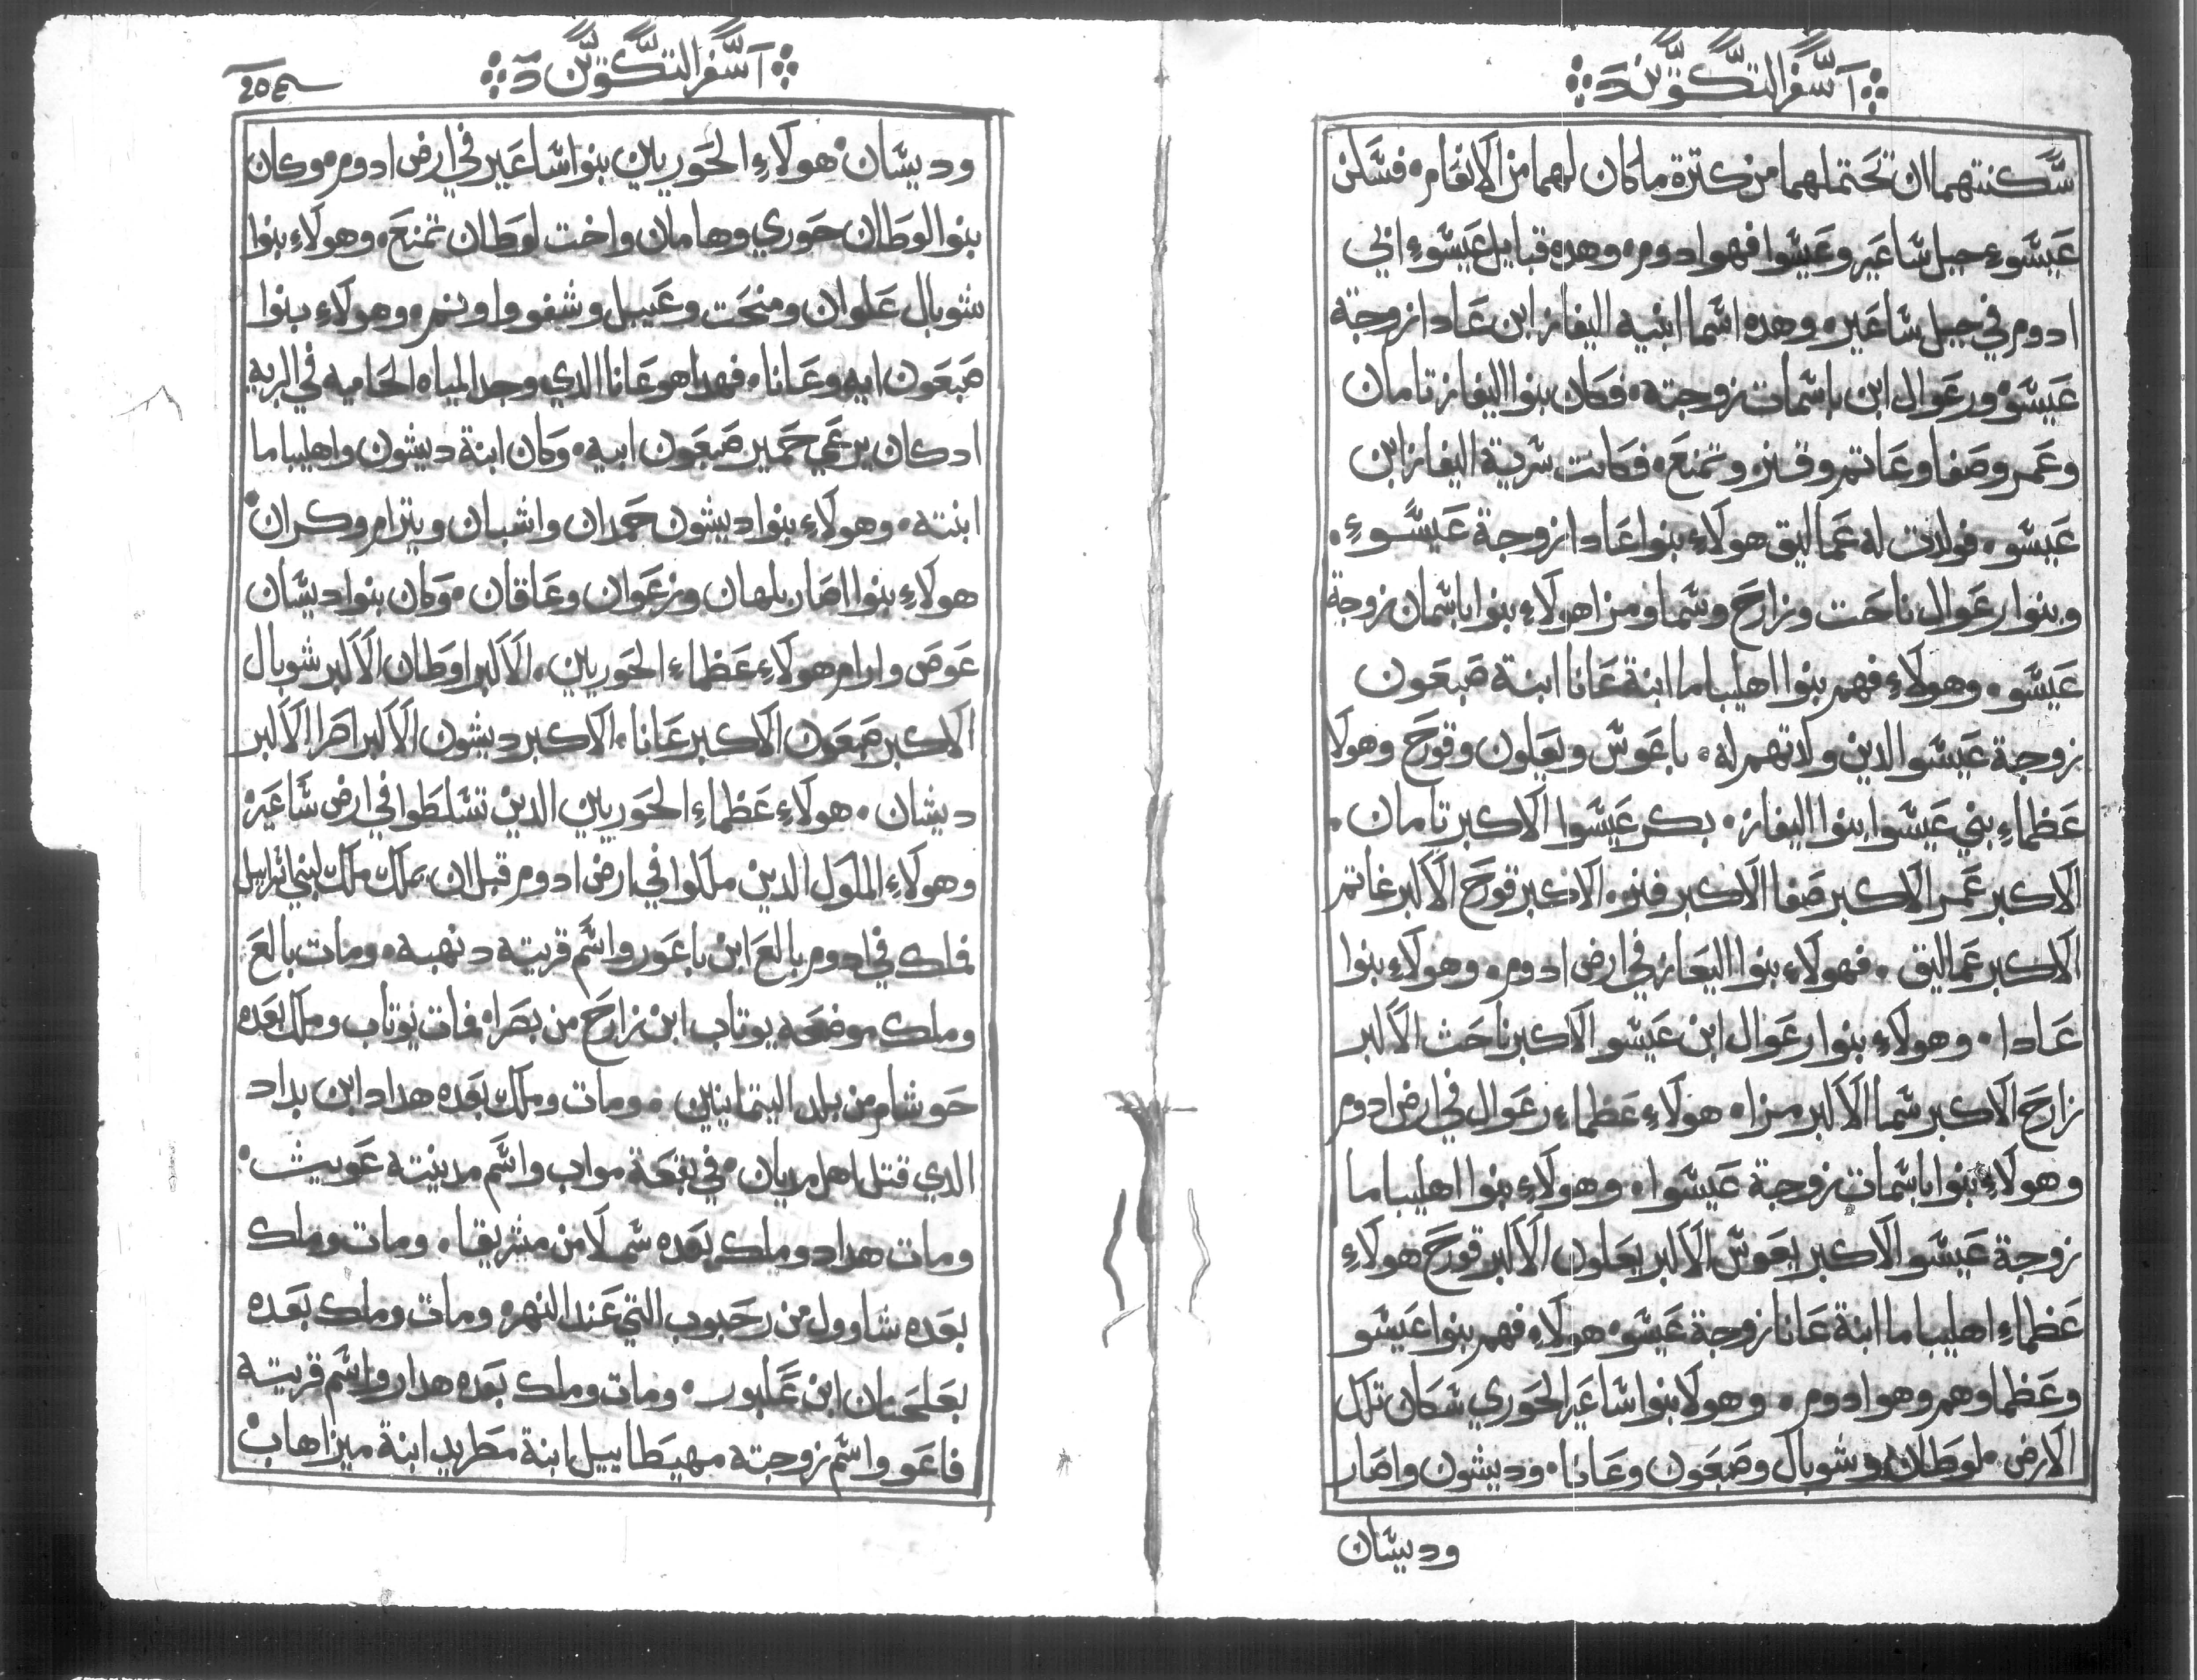 آ سفر التكوين د
سكنتهما ان تحتملهما من كترة ما كان لهما من الانعام، فسكن
عيسوء جبل ساعير وعيسوا فهو ادوم، وهده قبايل عيسوء ابي
ادوم في جبل ساعير، وهده اسما ابنيه اليفاز ابن عادا زوجة
عيسو ورعوال ابن باسمات زوجته، وكان بنوا اليفاز تامان
وعمر وصفا وعاتم وقنز، وتمنع، فكانت سرية اليفاز ابن
عيسو، فولدت له عماليق هولاء بنوا عادا زوجة عيسوء،
وبنوا رعوال ناحت وزارح وسما ومزا هولاء بنوا باسمان زوجة
عيسو، وهولاء فهم بنوا اهليباما ابنة عانا ابنة صبعون
زوجة عيسو الدين ولاتهم له، باعوس ويعلون وقورح وهولا
عظماء بني عيسوا بنوا اليفاز، بكر عيسوا الاكبر تامان،
الاكبر عمر الاكبر صفا الاكبر فنز، الاكبر قورح الاكبر غاتم
الاكبر عماليق، فهولاء بنوا اليعاز في ارض ادوم، وهولاء بنوا
عادا، وهولاء بنوا رعوال ابن عيسو الاكبر ناحث الاكبر
زارح الاكبر سما الاكبر مزا، هولاء عظماء رعوال في ارض ادوم
وهولاء بنوا باسمات زوجة عيسوا، وهولاء بنوا اهليباما
زوجة عيسو الاكبر يعوس الاكبر يعلون الاكبر قورح هولاء
عظماء اهليباما ابنة عانا زوجة عيسو، هولاء فهم بنوا عيسو
وعظماوهم وهو ادوم، وهولا بنوا ساعير الحوري سكان تلك
الارض، لوطان وشوبال وصبعون وعانا، وديشون واصار
وديسان
آ سفر التكوين د
ودیسان، هولاء الحوريين بنوا ساعير في ارض ادوم، وكان
بنوا لوطان حوري وهامان واخت لوطان تمنع، وهولاء بنوا
شوبال علوان ومنحت وعيبل وشفووا ونم، وهولاء بنوا
صبعون ايه وعانا، فهدا هو عانا الدي وجد المياه الحاميه في البريه
ادكان يرعي حمير صبعون ابيه، وكان ابنة ديشون واهليباما
ابنته، وهولاء بنوا ديشون حمدان واشبان ويترام وكران،
هولاء بنوا اصار بلهان وزعوان وعاقان، وكان بنوا ديسان
عوص وارام هولاء عظماء الحوريين، الاكبر اوطان الاكبر شوبال
الاكبر صبعون الاكبر عانا، الاكبر ديشون الاكبر اصرا الاكبر
ديشان، هولاء عظماء الحوريين الدين تسلطوا في ارض ساعير،
وهولاء الملول الدين ملكوا في ارض ادوم قبل ان يملك ملك لبني اسراييل
فملك في ادوم بالع ابن باعور واسم قريته دنهبه، ومات بالع
وملك موضعه يوتاب ابن زارح من بصرا، فمات يوتاب وملك بعده
حوشام من بلد اليتمانيين، ومات وملك بعده هداد ابن بداد
الدي قتل اهل مديان، في بقعة مواب واسم مدينته عويث،
ومات هداد وملك بعده سملا من مشريقا، ومات وملك
بعده شاوول من رحبوب التي عند النهر، ومات وملك بعده
بعلحنان ابن عكبور، ومات وملك بعده هدار واسم قريته
فاعو واسم زوجته مهيطابيل ابنة مطريد ابنة ميزاهاب،